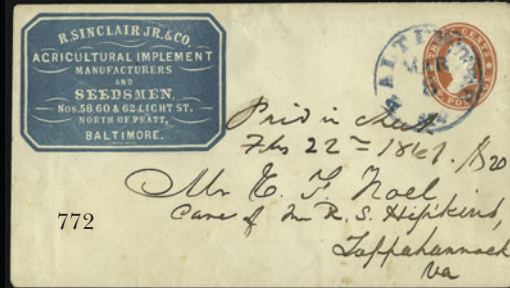 R. SINCLAIR JR. & CO.
AGRICULTURAL IMPLEMENT
MANUFACTURERS
AND
SEEDSMEN,
Nos. 58 60 & 62 LIGHT ST.
NORTH OF PRATT,
BALTIMORE.
BALTIMORE
MAR
THREE CENTS
Paid in
Feb 22= 1861. $20
Mr E. F. Noel
Care of Mr R. S. Hipkins,
Tappahannock
Va
772